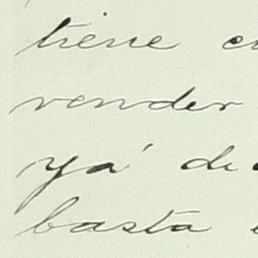 tiene
vender
ya'
basta